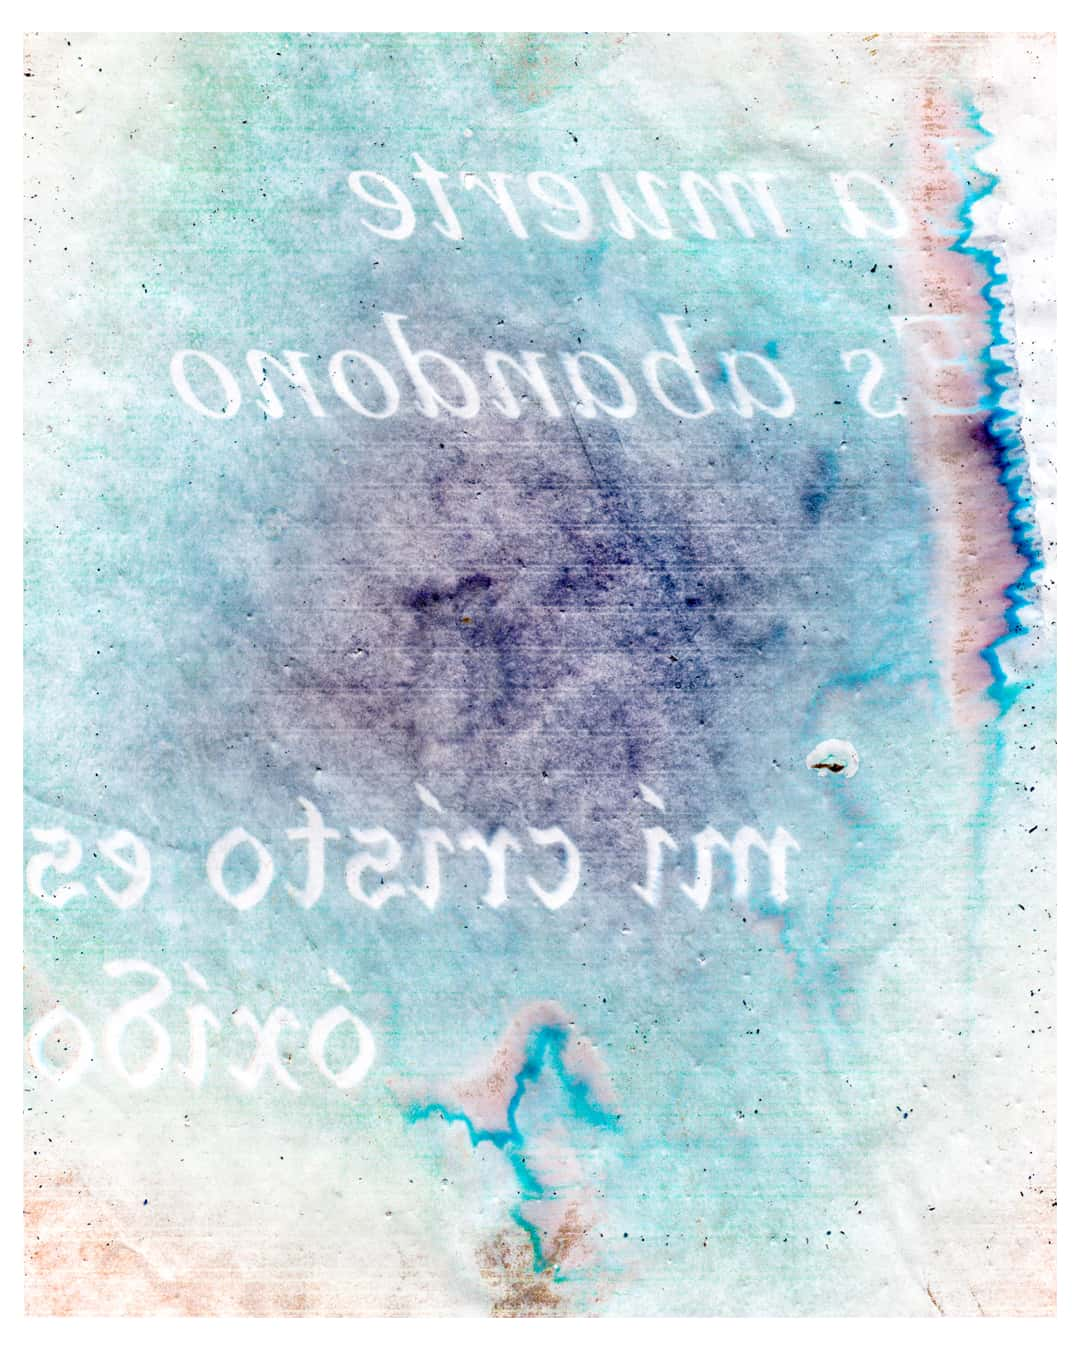 a muerte
Es abandono
mi cristo es
óxido